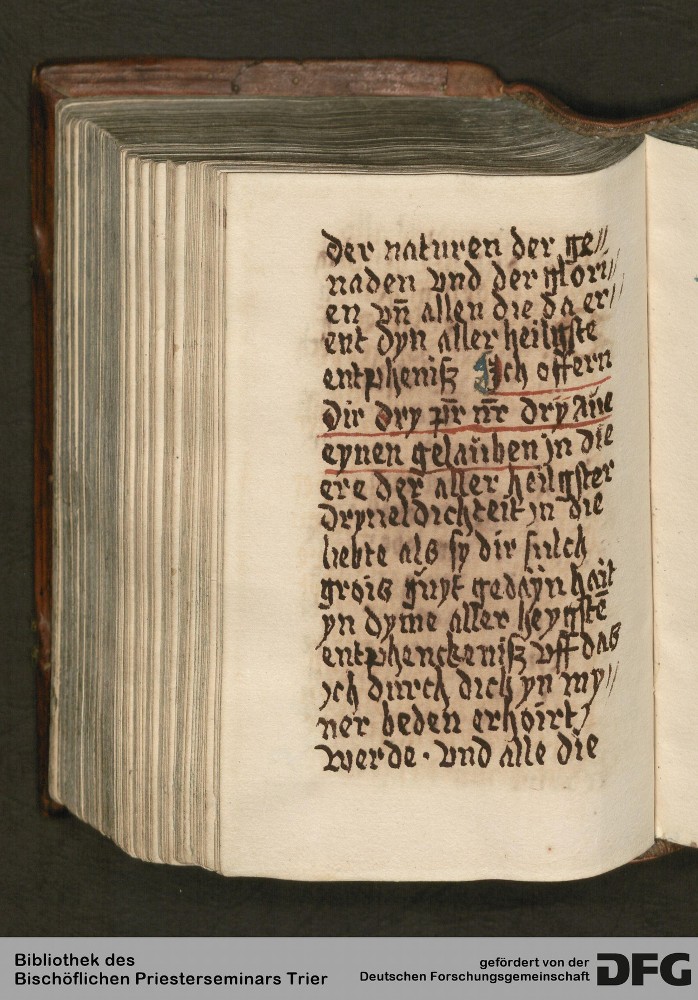 der naturen der ge//
naden vnd der glori//
en vn̄ allen die da er//
ent dyn aller heilgste
entpheniß Jch offern
dir dry pr̄ nr̄ dry aue
eynen gelauben jn die
ere der aller heilgster
dryueldichteit jn die
liebte als sy dir sulch
grois guyt gedayn hait
yn dyme aller heygstē
entphenckeniß vff das
jch durch dich yn my//
ner beden erhoirt/
werde · vnd alle die
Bibliothek des
Bischöflichen Priesterseminars Trier
gefördert von der
Deutschen Forschungsgemeinschaft
DFG